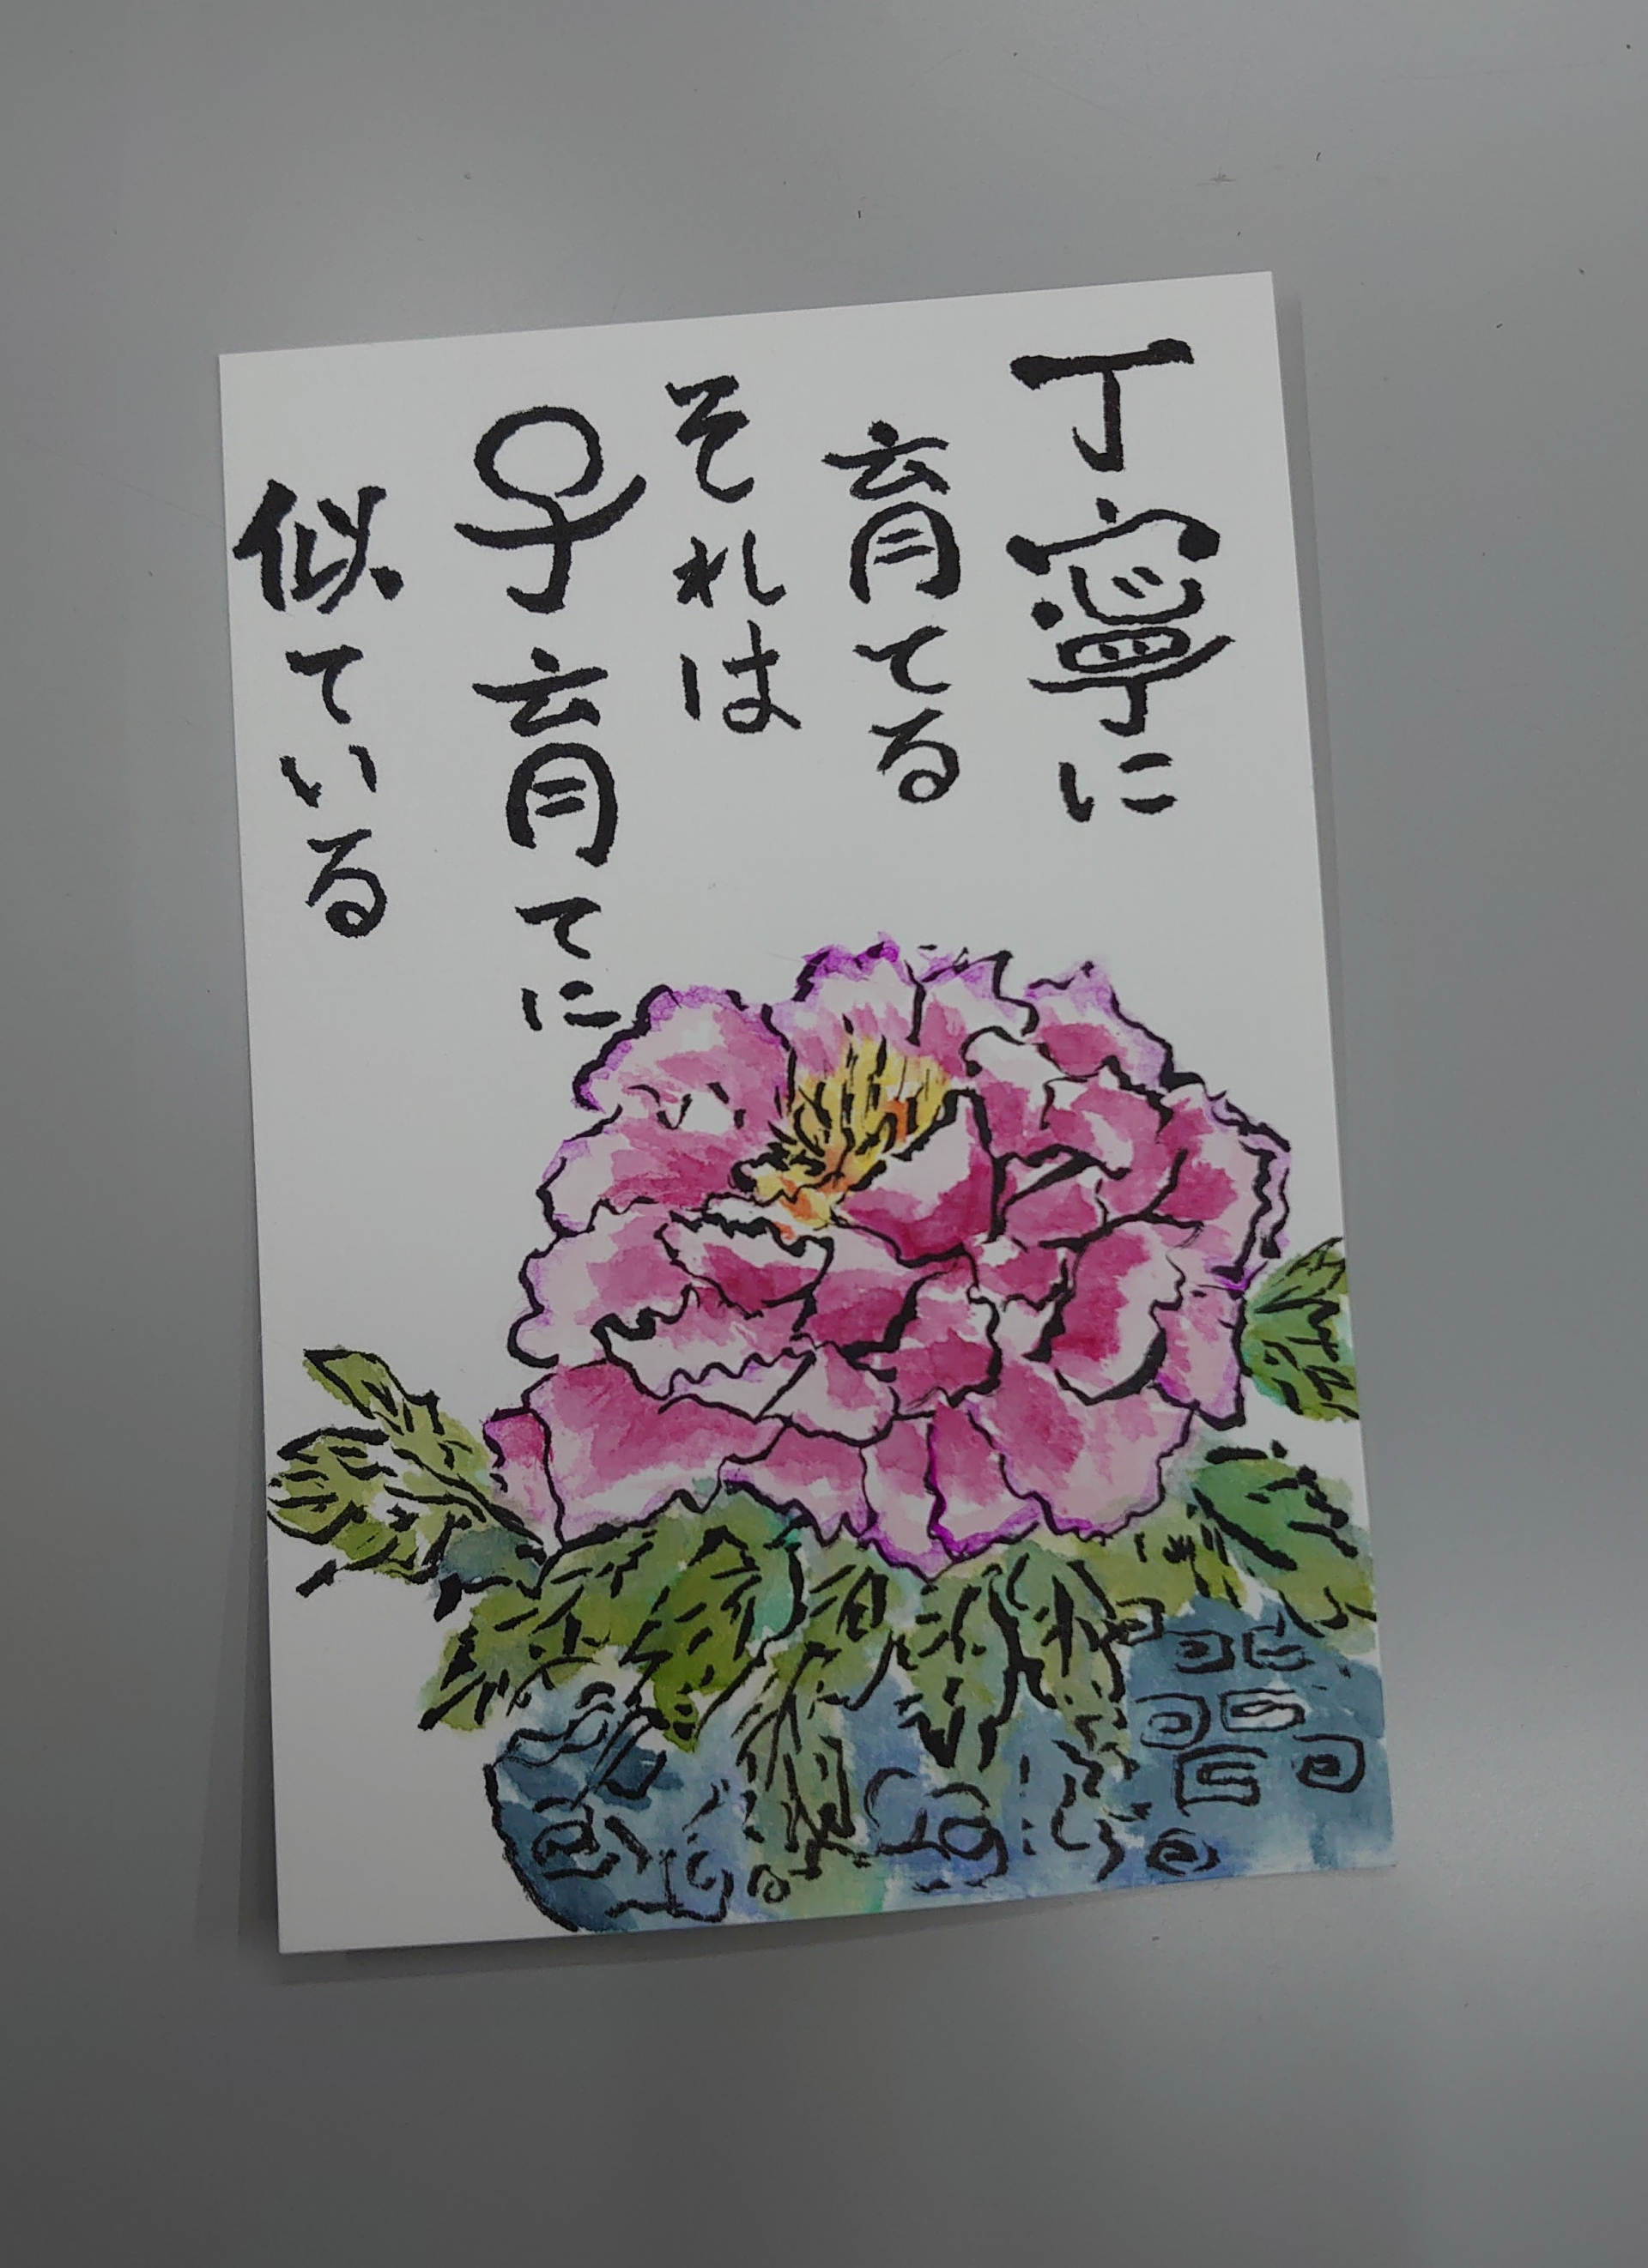 丁寧に
育てる
それは
子育てに
似ている